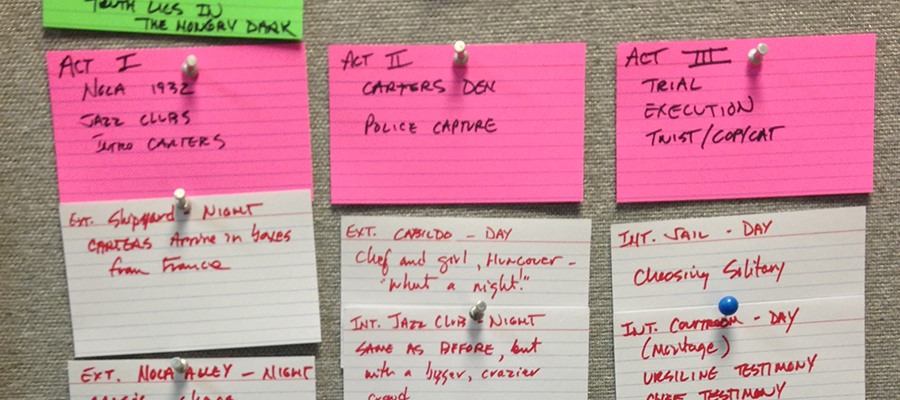 TRUTH LIES IN
THE HUNGRY DARK
ACT I
NOLA 1932
JAZZ CLUBS
INTRO CARTERS
EXT. Shipyard - NIGHT
CARTERS Arrive in boxes
from France
EXT. NOLA ALLEY - NIGHT
ACT II
CARTERS DEN
POLICE CAPTURE
EXT. CABILDO - DAY
Chef and girl, Hungover -
"What a night!"
INT. JAZZ CLUB - NIGHT
SAME AS BEFORE, but
with a bigger, crazier
crowd
ACT III
TRIAL
EXECUTION
TWIST/COPYCAT
INT. JAIL - DAY
Choosing Solitary
INT. COURTROOM - DAY
(Montage)
URSILINE TESTIMONY
CHEF TESTIMONY